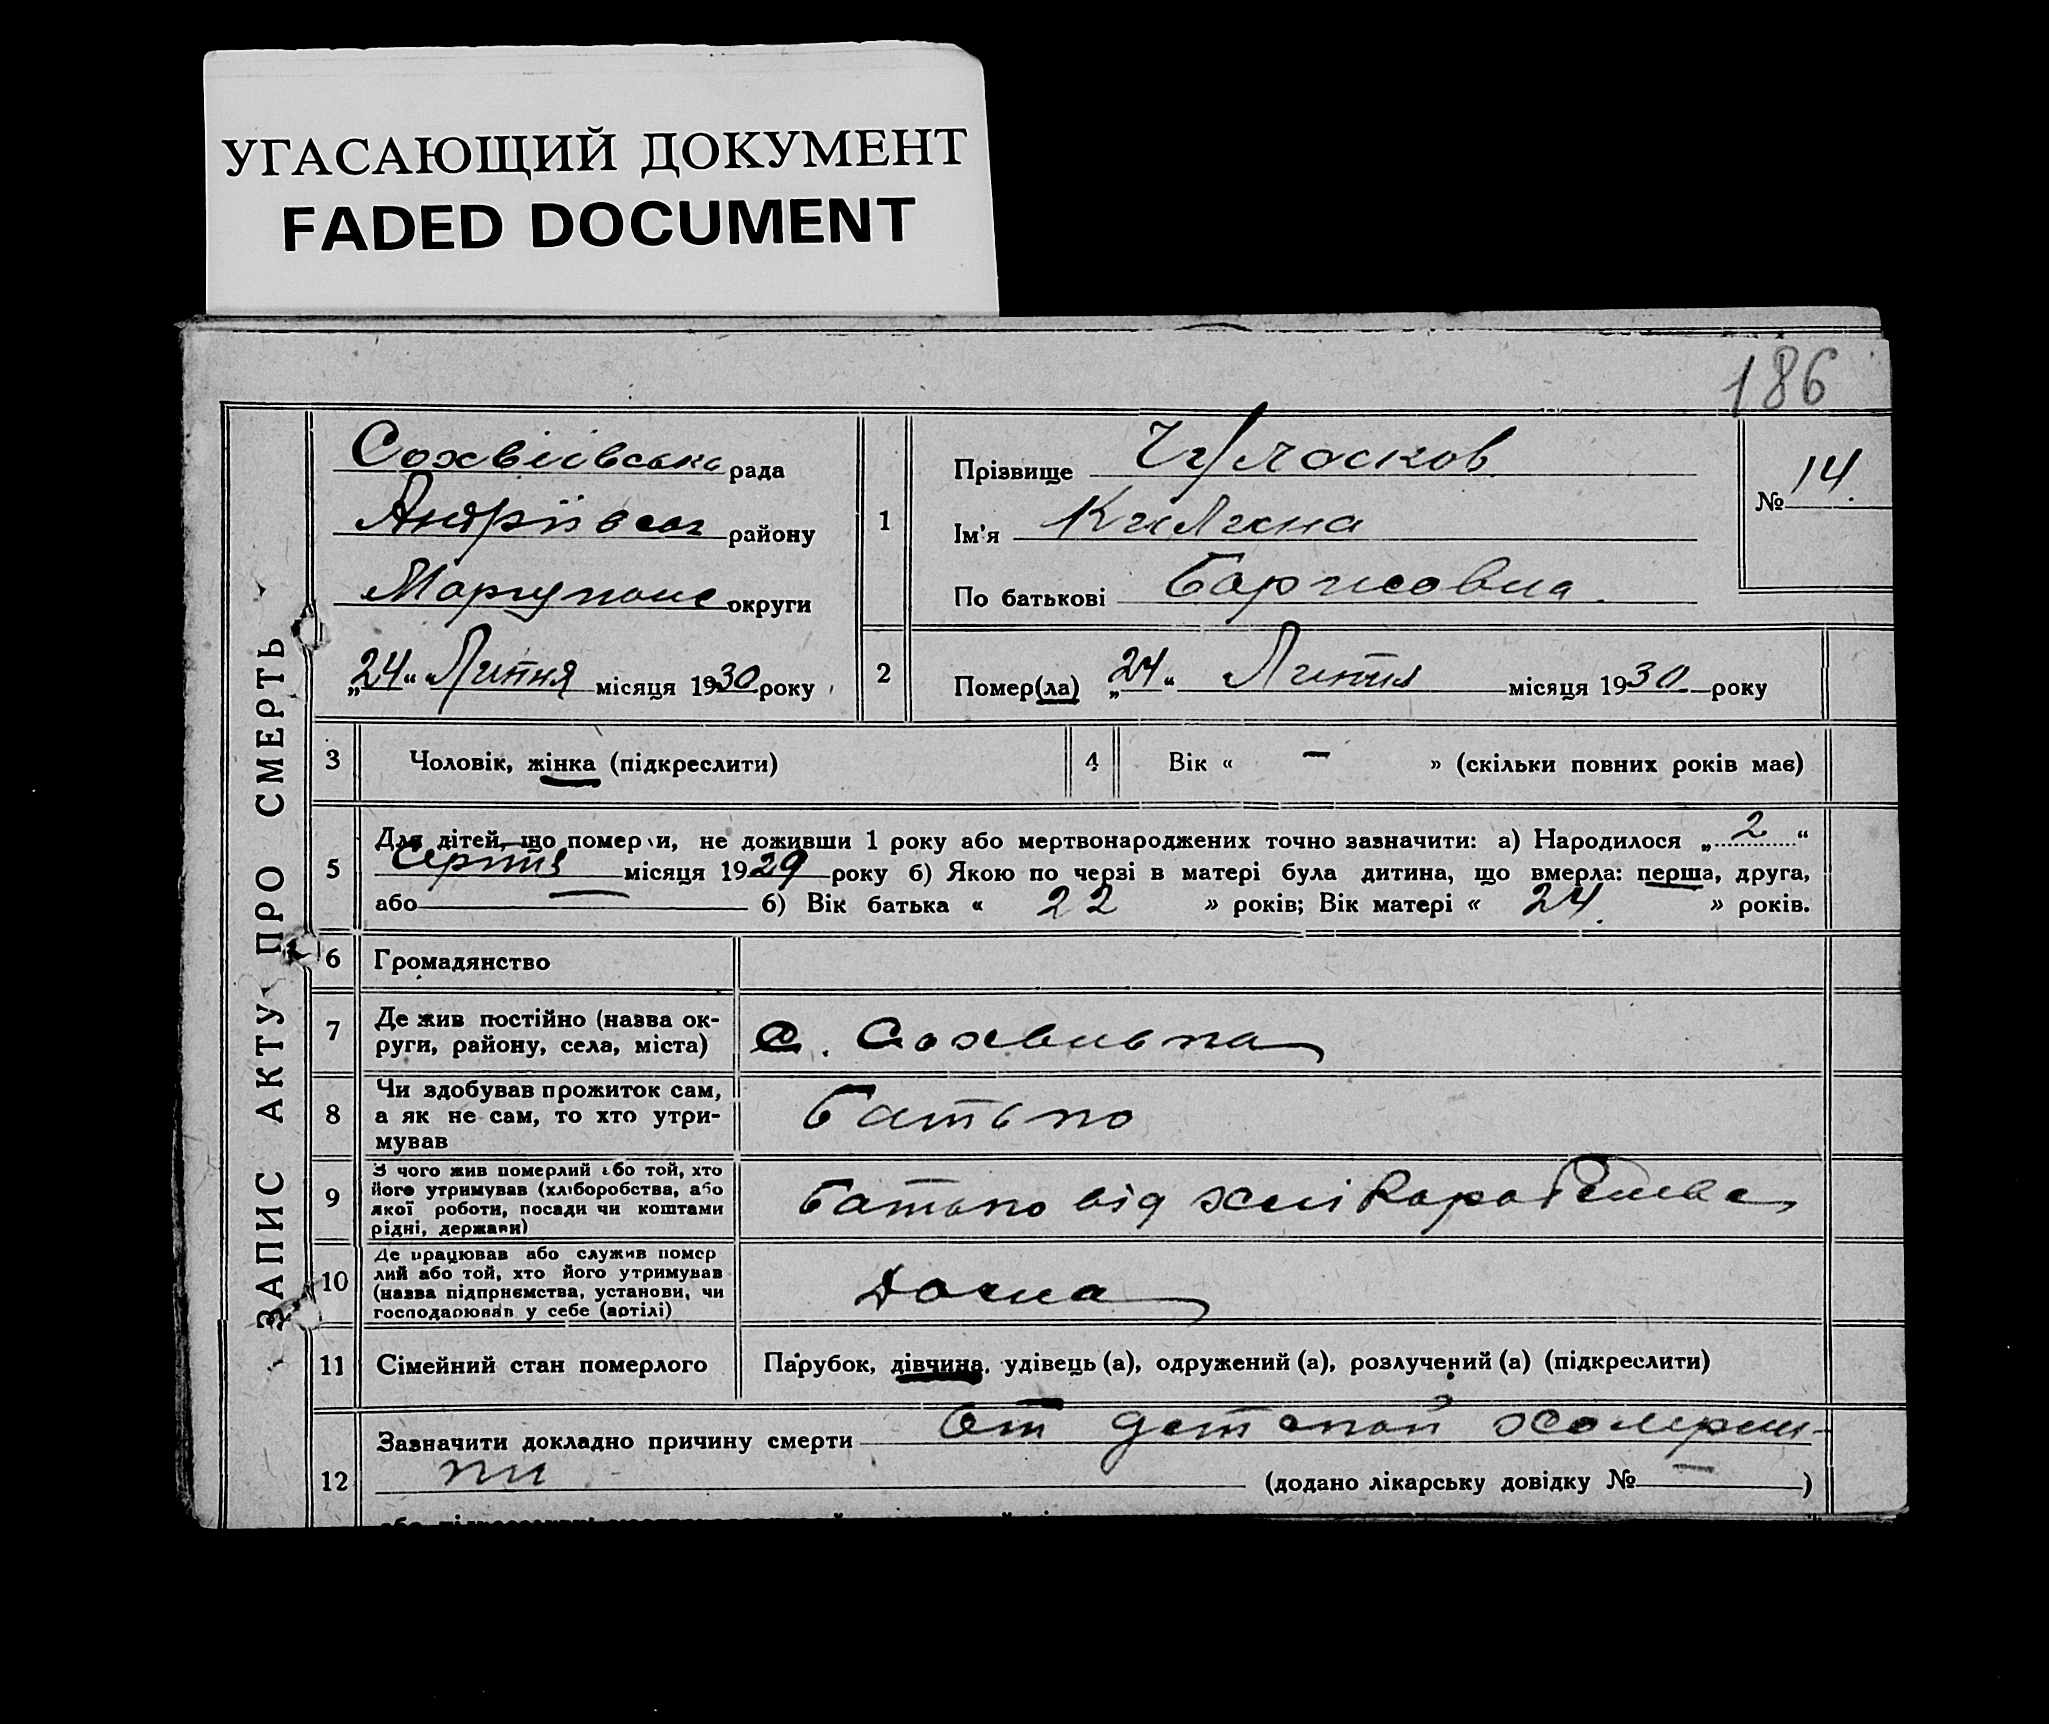 УГАСАЮЩИЙ ДОКУМЕНТ
FADED DOCUMENT
186
ЗАПИС АКТУ ПРО СМЕРТЬ
Сохвіівська рада
Андріівськ району
Маріупольс округи
„24“ Липня місяця 1930 року
1
Прізвище
Ім'я Килина
По батькові Борисовна.
№ 14.
2
Помер(ла) „24“ Липня місяця 1930. року
3 Чоловік, жінка (підкреслити)
4 Вік « – » (скільки повних років має)
5 Для дітей, що померли, не доживши 1 року або мертвонароджених точно зазначити: а) Народилося „2“
Серпня місяця 1929 року б) Якою по черзі в матері була дитина, що вмерла: перша, друга,
або — б) Вік батька « 22 » років; Вік матері « 24. » років.
6 Громадянство
7 Де жив постійно (назва ок-
руги, району, села, міста)
с.
8 Чи здобував прожиток сам,
а як не сам, то хто утри-
мував
Батько
9 З чого жив померлий або той, хто
його утримував (хліборобства, або
якої роботи, посади чи коштами
рідні, держави)
батько від
10 Де працював або служив помер
лий або той, хто його утримував
(назва підприємства, установи, чи
господарював у себе (артілі)
Дома
11 Сімейний стан померлого
Парубок, дівчина, удівець (а), одружений (а), розлучений (а) (підкреслити)
12 Зазначити докладно причину смерти От детской холерин-
ки (додано лікарську довідку № — )